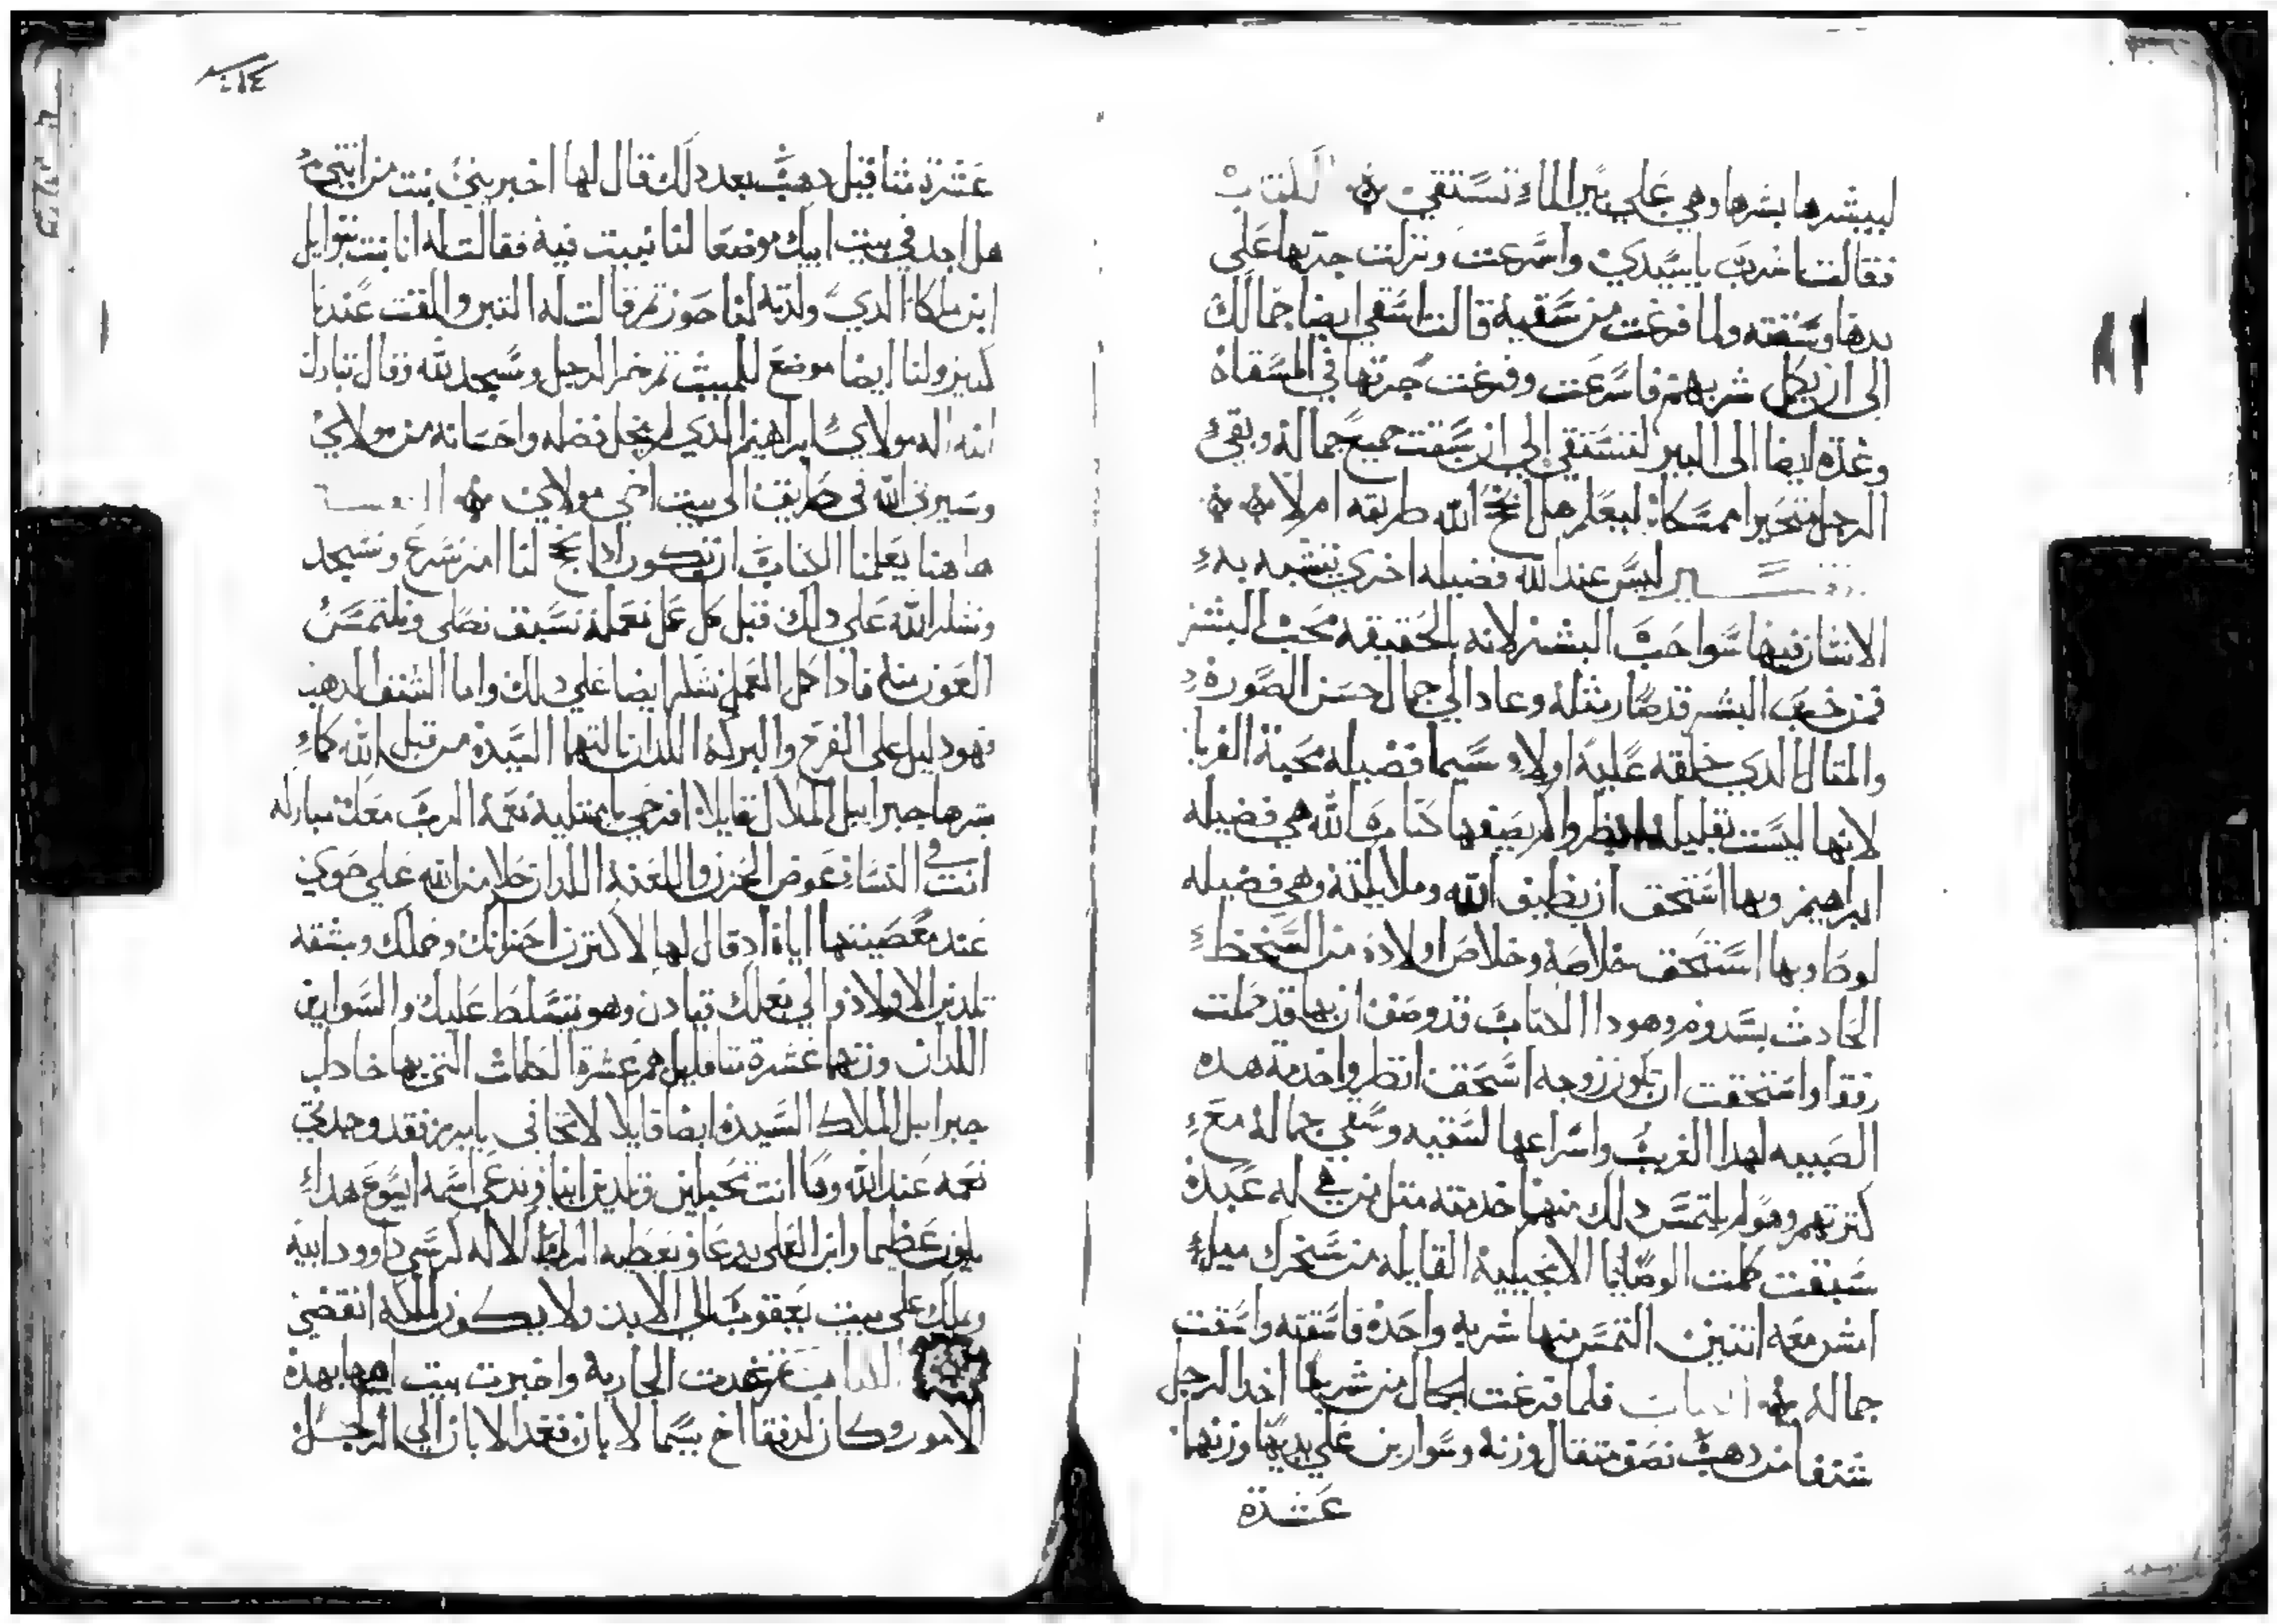 ليبشرها بشرها وهي على بير الماء تستقي الكتاب
فقالت اشرب ياسيدي واسرعت ونزلت جرتها على
يدها وسقته ولما فرغت من سقيه قالت استقي ايضا جمالك
الى ان يكمل شربهم فاسرعت وفرغت جرتها في المسقاه
وغدة ايضا الى البير لتستقي الى ان سقت جميع جماله وبقي
الرجل متحيرا ممسكا ليعلم هل انجح الله طريقه ام لا
ليس عند الله فضيله اخري يتشبه به
الانسان فيها سوا حب البشر لانه بالحقيقه محب البشر
فمن حب البشر قد صار مثله وعاد الي جمال حسن الصوره
والمتال الدي خلقه عليه اولا وسيما فضيله محبة الغربا
لانها ليست بقليله انظروا كم يصفها كتاب الله هي فضيله
ابراهيم وبها استحق ان يظيف الله وملايكته وهي فضيله
لوط وبها استحق خلاصه وخلاص اولاده من السخط
الحادث بسدوم وهودا الكتاب قد وصف ان بها قد كملت
رفقا واستحقت ان تكون زوجه اسحق انظروا خدمة هده
الصبيه لهدا الغريب واسراعها لسقيه وسقي جماله مع
كترتهم وهو لم يلتمس دلك منها خدمته متل من هي له عبدة
سبقت كملت الوصايا الانجيلية القايله من سخرك ميل
امش معه اتنين التمس منها شربه واحدة فاسقته واسقت
جماله الكتاب فلما فرغت الجمال من شربها اخد الرجل
شنفا من دهب نصف متقال وزنه وسوارين علي يديها وزنهما
عشرة
عشرة متاقيل دهب بعد دلك قال لها اخبريني بنت من انتي
هل اجد في بيت ابيك موضعا لنا نبيت فيه فقالت له انا بنت بتوايل
ابن ملكا الدي ولدته لنا حور تم قالت له التبن والقت عندنا
كتير ولنا ايضا موضع للمبيت تم خر الرجل وسجد لله وقال تبارك
الله اله مولاي ابراهيم الدي لم يخل فضله واحسانه من مولاي
وسيرني الله في طريق الى بيت اخي مولاي
هاهنا يعلمنا الكتاب ان نكون ادا نجح لنا امر نسرع ونسجد
ونشكر الله علي دلك قبل كل عمل نعمله نسبق نصلي ونلتمس
العون منه فادا كمل العمل نشكر ايضا علي دلك واما الشنف الدهب
فهو دليل على الفرح والبركه اللدان نالتها السيدة من قبل الله كما
بشرها جبراييل الملاك قايلا افرحي يا ممتلية نعمة الرب معك مباركه
انت في النسا عوض الحزن واللعنة اللدان حلا من الله علي حوي
عند معصيتها اياه اد قال لها لاكترن احزانك وحملك وبشقه
تلدين الاولاد والي بعلك قيادك وهو يتسلط عليك والسوارين
اللدان وزنهما عشرة متاقيل هم عشرة الكلمات التي بها خاطب
جبراييل الملاك السيدة ايضا قايلا لا تخافي يامريم فقد وجدتي
نعمه عند الله وها انت تحبلين وتلدين ابنا وتدعي اسمه ايسوع هدا
يكون عظيما وابن العلي يدعا ويعطيه الرب الاله كرسي داوود ابيه
ويملك على بيت يعقوب الى الابد ولا يكون لملكه انقضي
الكتاب تم غدت الجارية واخبرت بيت امها بهده
الامور وكان لرفقا اخ يسما لابان فغدا لابان الي الرجل